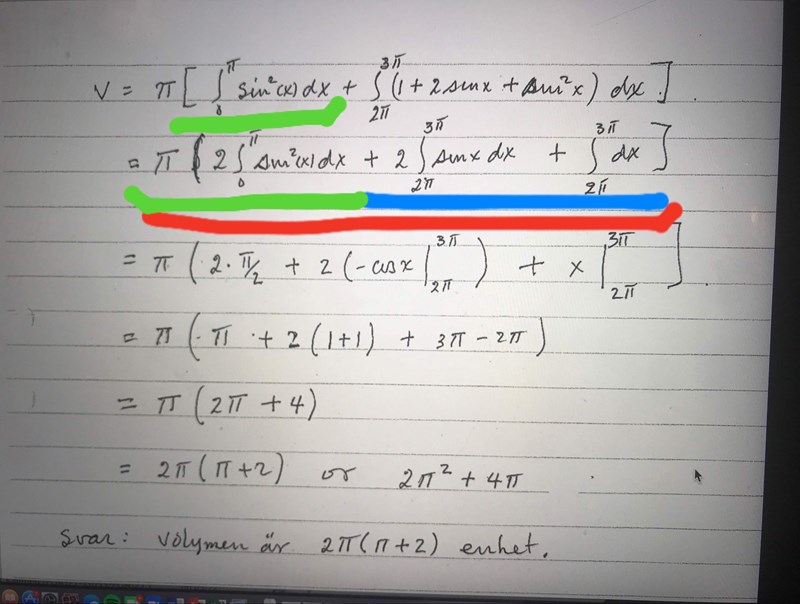 V = π [ ∫₀^π sin²(x) dx + ∫_{2π}^{3π} (1 + 2 sin x + sin² x) dx ] .
= π ( 2 ∫₀^π sin²(x) dx + 2 ∫_{2π}^{3π} sin x dx + ∫_{2π}^{3π} dx ]
= π ( 2 · π/2 + 2 (-cos x |_{2π}^{3π} ) + x |_{2π}^{3π} ] .
= π ( · π · + 2 (1+1) + 3π - 2π )
= π ( 2π + 4 )
= 2π ( π + 2 ) or 2π² + 4π .
Svar: Volymen är 2π(π+2) enhet.